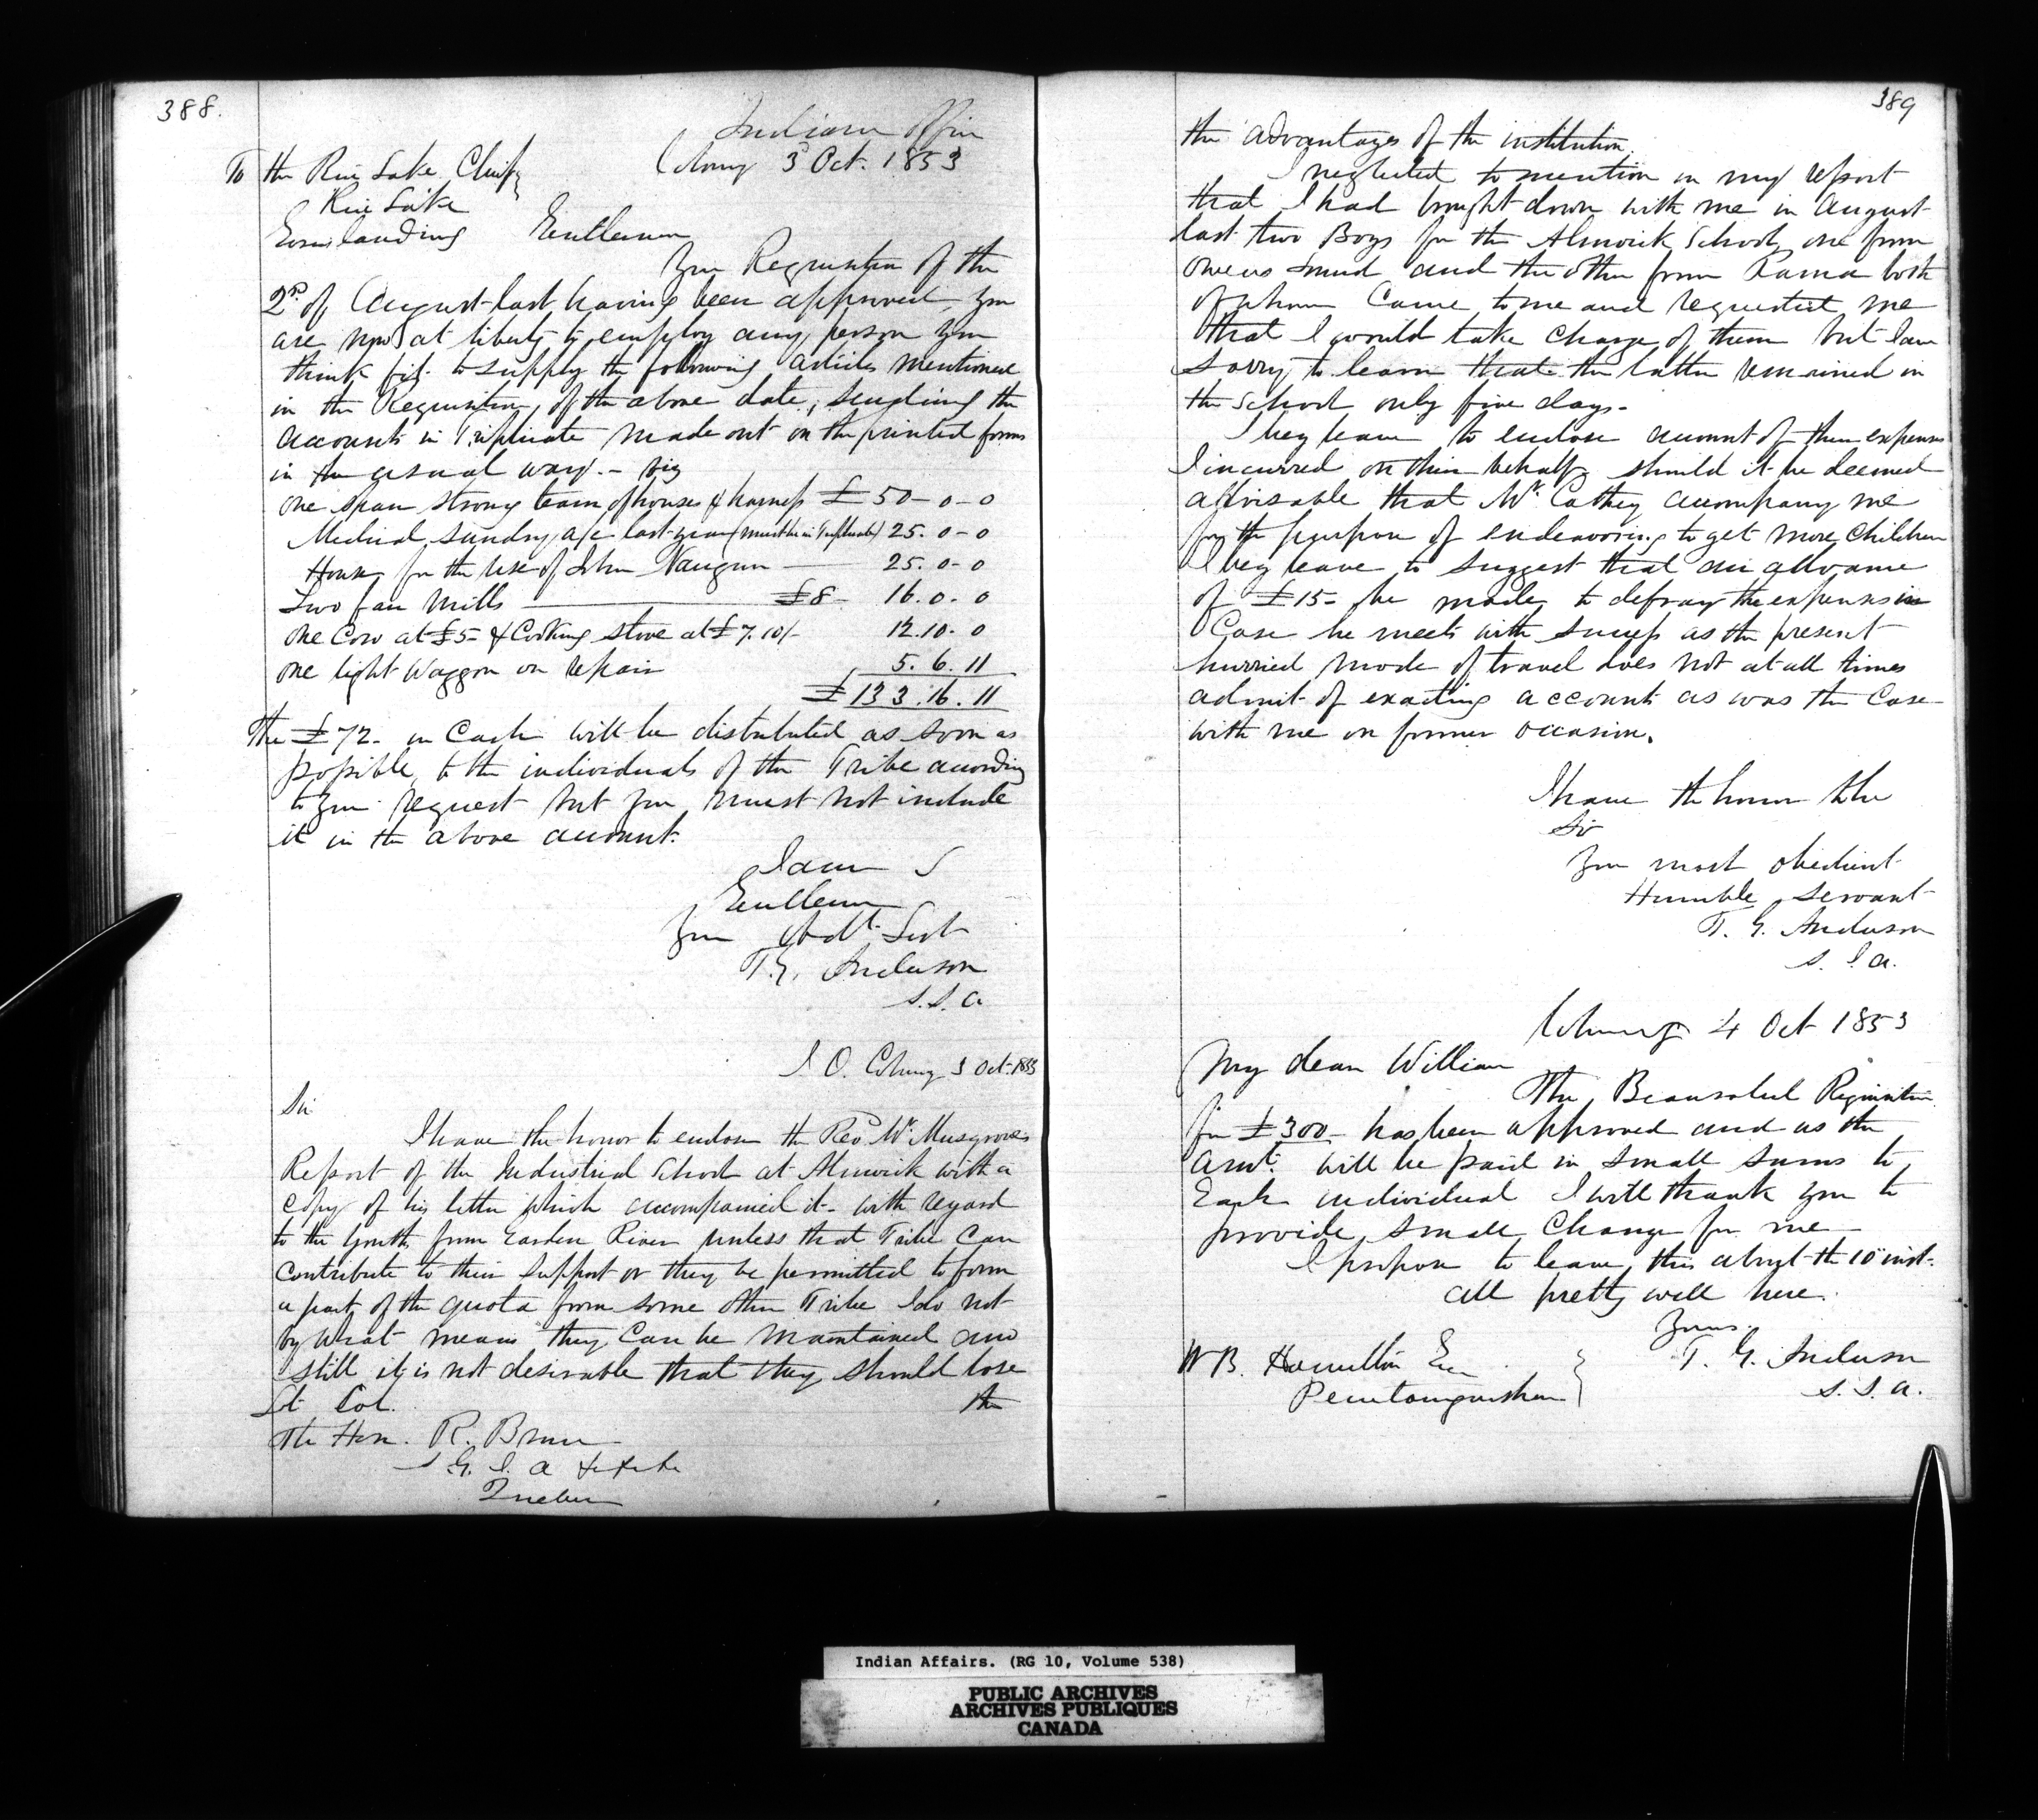 388.
Indian Office
Cobourg 3 Oct. 1853
To the Rice Lake Chiefs
Rice Lake
Gores landing
Gentlemen
Your Requisition of the
2nd of August last having been approved, you
are now at liberty to employ any person you
think fit to supply the following articles mentioned
in the Requisition, of the above date, sending the
accounts in Triplicate made out on the printed forms
in the usual way. - viz
One span strong team of horses & harness £50-0-0
Medical sundry a/c last year (must be in Triplicate) 25.0-0
House for the use of John Naugun 25.0-0
Two fan Mills £8- 16.0.0
One Cow at £5- & Cooking stove at £7.10/- 12.10.0
One light Waggon on repair 5.6.11
£133.16.11
The £72- in Cash will be distributed as soon as
possible, to the individuals of the Tribe according
to your request but you must not include
it in the above account.
I am
Gentlemen
Your Obdt Svt
T.G. Anderson
S.I.A
I O. Cobourg 3 Oct. 1853
Sir
I have the honor to enclose the Revd Mr. Musgroves
Report of the Industrial School at Alnwick with a
copy of his letter which accompanied it - with regard
to the youths from Garden River unless that Tribe can
contribute to their support or they be permitted to form
a part of the quota from some other Tribe I do not
by what means they can be maintained and
still it is not desirable that they should lose
the
Lt Col.
The Hon. R. Bruce
S.G.I.A &c &c &c
Quebec
389
the advantages of the institution.
I neglected to mention in my report
that I had brought down with me in August
last two Boys for the Alnwick School, one from
Owens Sound and the other from Rama both
of whom Came to me and requested me
that I would take charge of them but I am
sorry to learn that the latter remained in
the School only five days -
I beg leave to enclose amount of them expenses
I incurred on their behalf, should it be deemed
advisable that Mr. Cathey accompany me
for the purpose of endeavoring to get more Children
I beg leave to suggest that an allowance
of £15- be made, to defray the expenses in
Case he meets with success as the present
hurried mode of travel does not at all times
admit of exacting accounts as was the Case
with me on former occasion.
I have the honor to be
Sir
Your most obedient
Humble Servant
T. G. Anderson
S.I.A.
Cobourg 4 Oct 1853
My dear William
The Beausoleil Requisition
for £300- has been approved and as the
amt. will be paid in small sums to
Each individual I will thank you to
provide small Change for me
I propose to leave this about the 10th inst.
all pretty well here.
Yours.
T. G. Anderson
S.I.A.
W B. Hamilton Esq
Penetanguishene
Indian Affairs. (RG 10, Volume 538)
PUBLIC ARCHIVES
ARCHIVES PUBLIQUES
CANADA